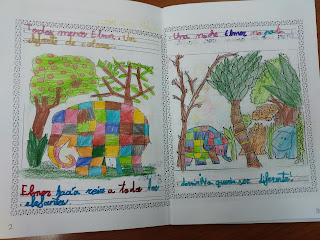 todos menos Elmer. Un
elefante de colores.
Elmer hacía reir a todo los
elefantes.
2
Una noche Elmer no podía
dormir quería ser diferente.